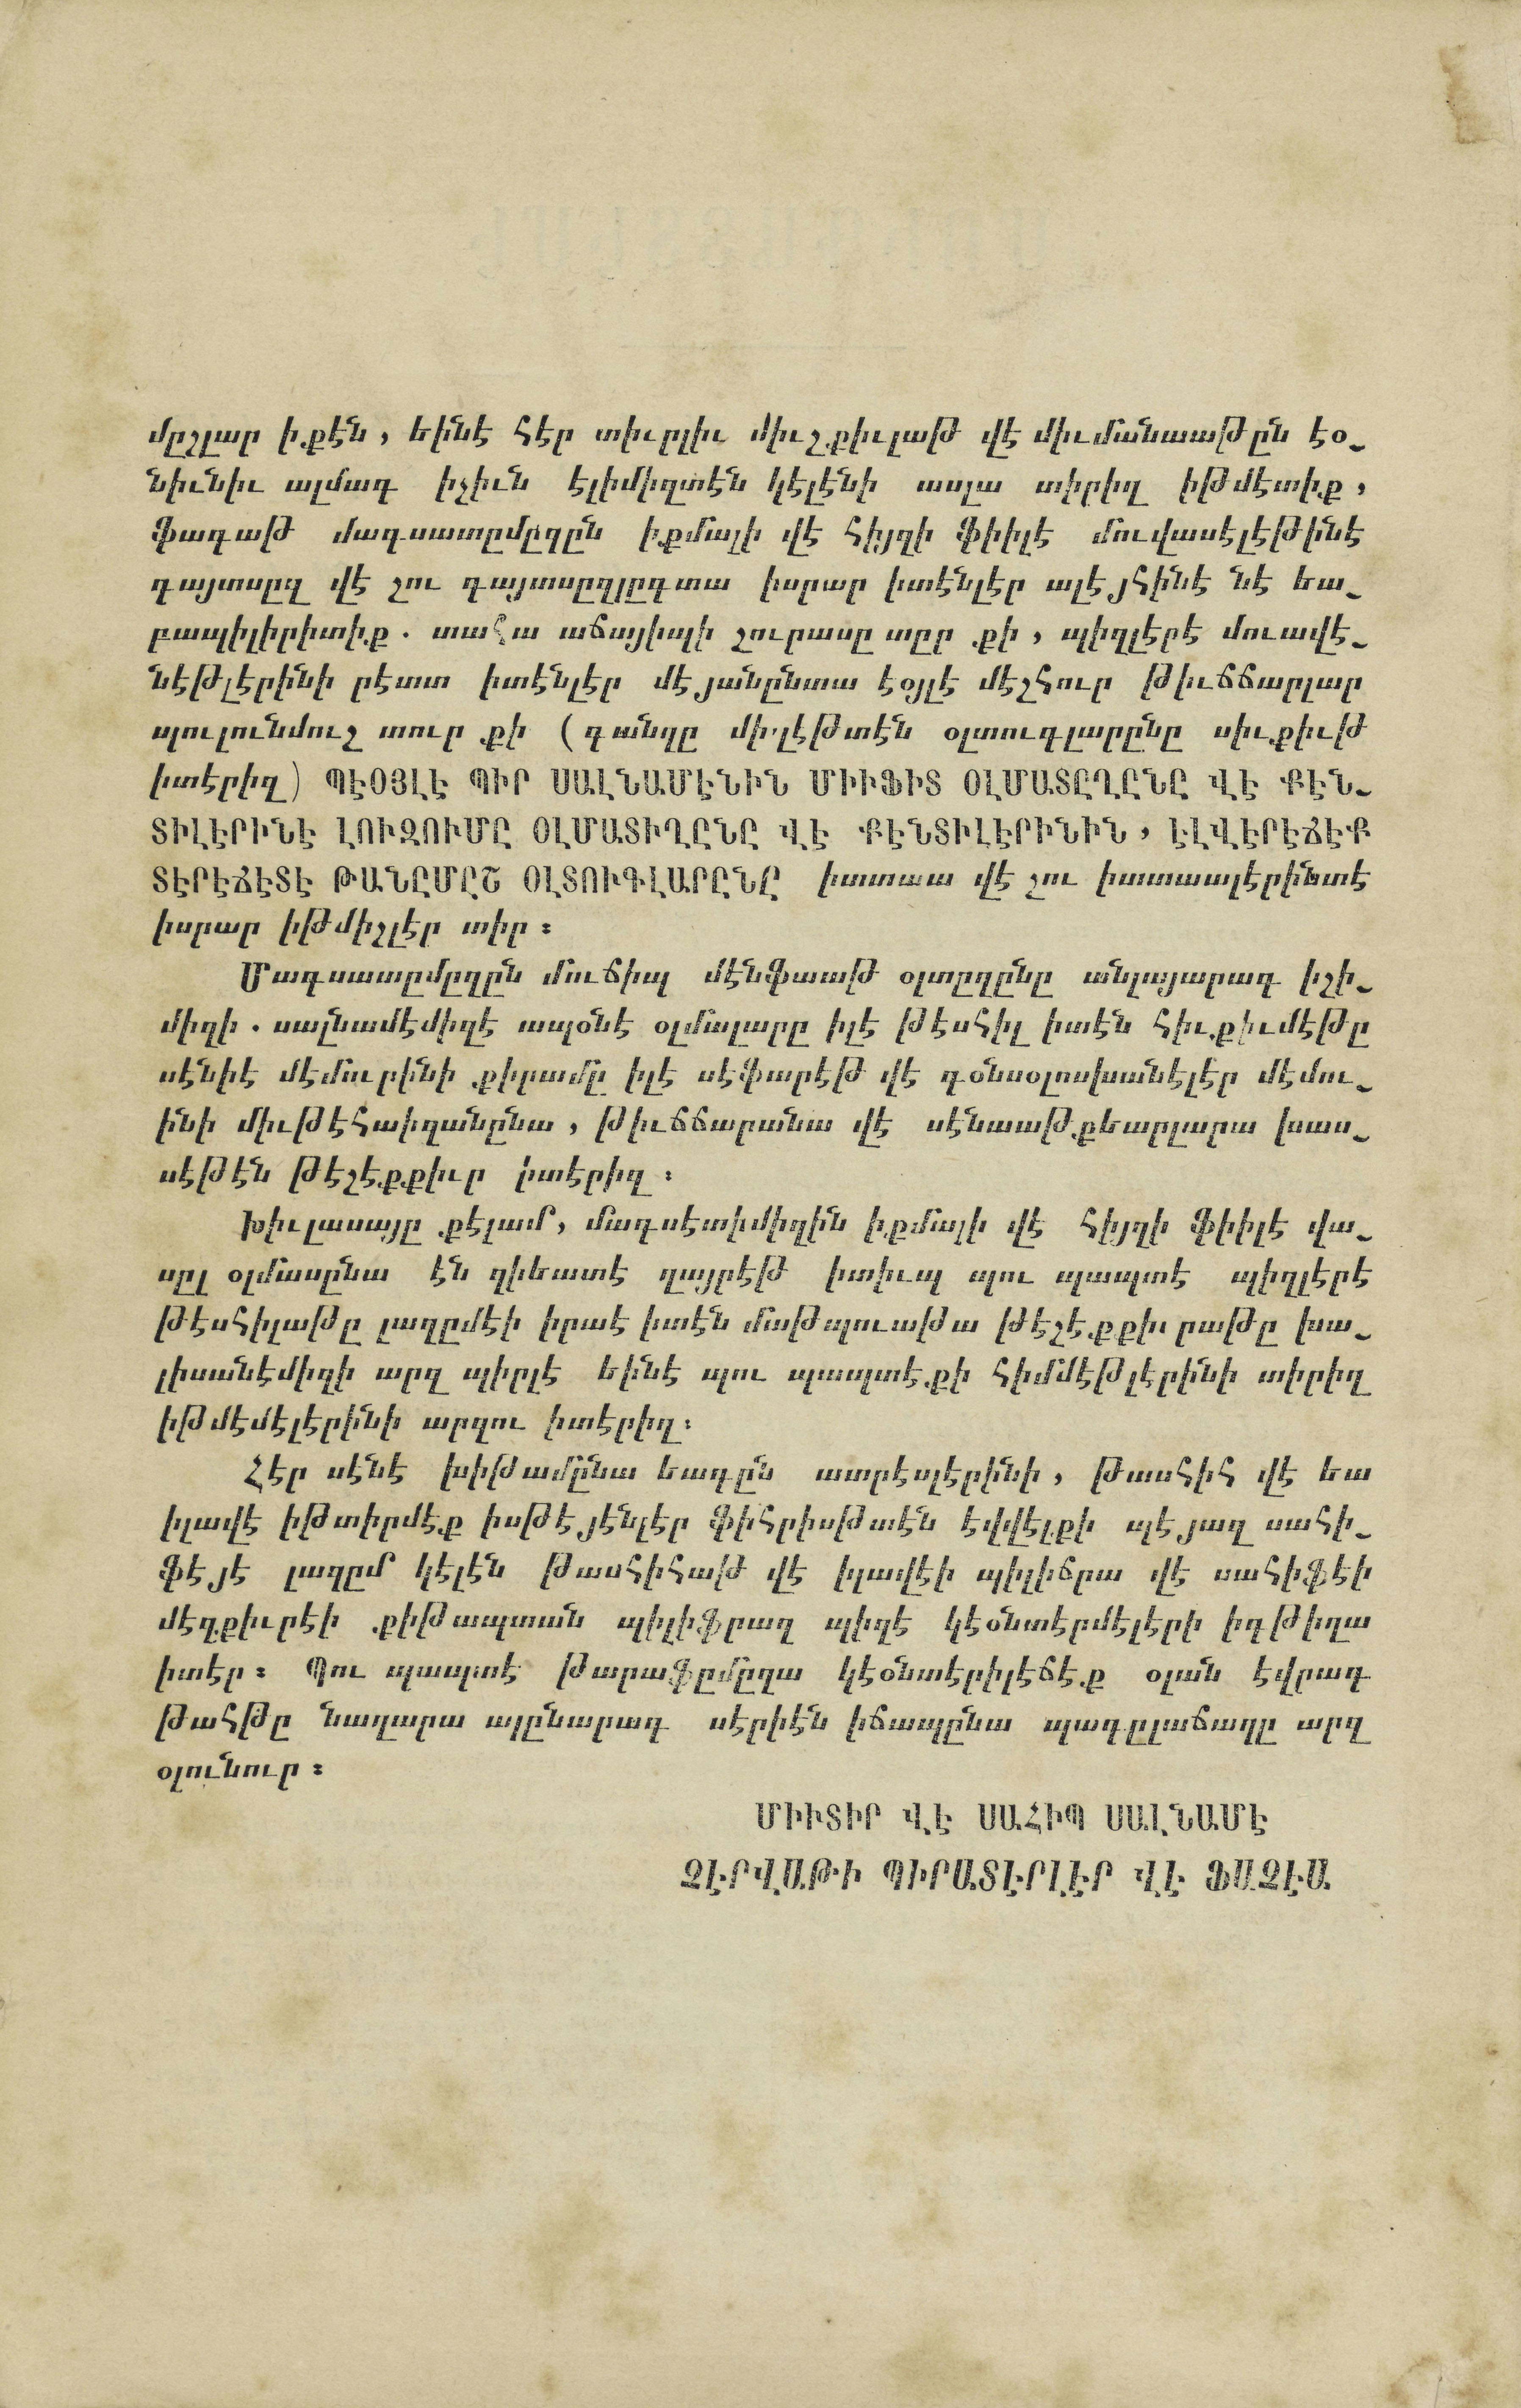 մըշլար ի.քէն, եինէ հէր տիւրլիւ միւշ.քիւլաթ վէ միւմանաաթըն էօ֊
նիւնիւ ալմագ իչիւն էլիմիզտէն կէլէնի ասլա տիրիղ իթմէտի.ք,
ֆագաթ մագսատըմըզըն ի.քմալի վէ հիյզի ֆիիլէ մուվասէլէթինէ
գայտսըզ վէ շու գայտսըզլըգտա իսրար իտէնլէր ալէյհինէ նէ եա֊
բապիլիրիտի.ք. տահա աճայիպի շուրասը տըր .քի, պիզլէրէ մուավէ֊
նէթլէրինի րէտտ իտէնլէր մէյանընտա էօյլէ մէշհուր թիւճճարլար
պուլունմուշ տուր .քի (գանղը միլլէթտէն օլտուգլարընը սիւ.քիւթ
իտէրիզ) ՊԷՕՅԼԷ ՊԻՐ ՍԱԼՆԱՄԷՆԻՆ ՄԻՒՖԻՏ ՕԼՄԱՏԸՂԸՆԸ ՎԷ ՔԷՆ֊
ՏԻԼԷՐԻՆԷ ԼՈՒԶՈՒՄԸ ՕԼՄԱՏԻՂԸՆԸ ՎԷ ՔԷՆՏԻԼԷՐԻՆԻՆ, ԷԼՎԷՐԷՃԷՔ
ՏԷՐԷՃԷՏԷ ԹԱՆԸՄԸՇ ՕԼՏՈՒԳԼԱՐԸՆԸ իտտաա վէ շու իտտաալէրինտէ
իսրար իթմիշլէր տիր։
Մագսատըմըզըն մուճիպ մէնֆաաթ օլտըղընը անլայարագ իշի֊
միզի. սալնամէմիզէ ապօնէ օլմալարը իլէ թէսհիլ իտէն հիւ.քիւմէթը
սէնիէ մէմուրինի .քիրամը իլէ սէֆարէթ վէ գօնսօլոսխանէլէր մէմու֊
ինի միւթէհաիզանընա, թիւճճարանա վէ սէնաաթ.քեարլարա խաս֊
սէթէն թէշէ.ք.քիւր իտէրիզ։
Խիւլասայը .քէլամ, մագսէտիմիզին ի.քմալի վէ հիյզի ֆիիլէ վա֊
սըլ օլմասընա էն զիեատէ ղայրէթ իտիւպ պու պապտէ պիզլէրէ
թէսհիլաթը լազըմէի իրաէ իտէն մաթպուաթա թէշէ.ք.քիւրաթը խա֊
լիսանէմիզի արզ պիրլէ եինէ պու պապտէ.քի հիմմէթլէրինի տիրիղ
իթմէմէլէրինի արզու իտէրիզ։
Հէր սէնէ խիթամընա եագըն ատրէսլէրինի, թասհիհ վէ եա
իլավէ իթտիրմէ.ք իսթէյէնլէր ֆիհրիսթտէն էվվէլ.քի պէյազ սահի֊
ֆէյէ լազըմ կէլէն թասհիհաթ վէ իլավէի պիլիճրա վէ սահիֆէի
մէզ.քիւրէի .քիթապտան պիլիֆրազ պիզէ կէօնտէրմէլէրի իգթիզա
իտէր։ Պու պապտէ թարաֆըմըզա կէօնտէրիլէճէ.ք օլան էվրագ
թահթը նազարա ալընարագ սէրիէն իճապընա պագըլաճաղը արզ
օլունուր։
ՄԻՒՏԻՐ ՎԷ ՍԱՀԻՊ ՍԱԼՆԱՄԷ
ՉԷՐՎԱԹԻ ՊԻՐԱՏԷՐԼԷՐ ՎԷ ՖԱՉԷԱ